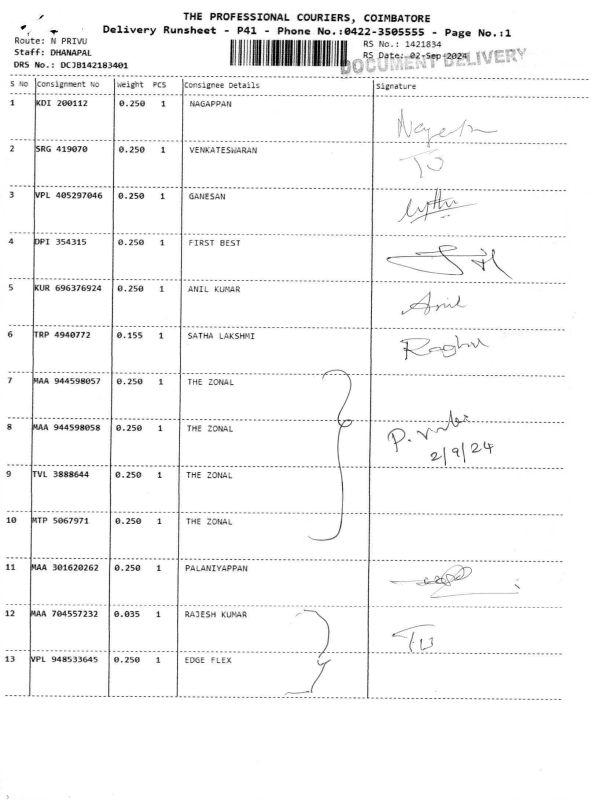 THE PROFESSIONAL COURIERS, COIMBATORE
Delivery Runsheet - P41 - Phone No.:0422-3505555 - Page No.:1
Route: N PRIVU
RS No.: 1421834
Staff: DHANAPAL
RS Date: 02-Sep-2024
DOCUMENT DELIVERY
DRS No.: DCJB142183401
S No Consignment No Weight PCS Consignee Details Signature
1 KDI 200112 0.250 1 NAGAPPAN
2 SRG 419070 0.250 1 VENKATESWARAN
3 VPL 405297046 0.250 1 GANESAN
4 DPI 354315 0.250 1 FIRST BEST
5 KUR 696376924 0.250 1 ANIL KUMAR
Anil
6 TRP 4940772 0.155 1 SATHA LAKSHMI
Raghu
7 MAA 944598057 0.250 1 THE ZONAL
8 MAA 944598058 0.250 1 THE ZONAL
P.
2/9/24
9 TVL 3888644 0.250 1 THE ZONAL
10 MTP 5067971 0.250 1 THE ZONAL
11 MAA 301620262 0.250 1 PALANIYAPPAN
12 MAA 704557232 0.035 1 RAJESH KUMAR
13 VPL 948533645 0.250 1 EDGE FLEX